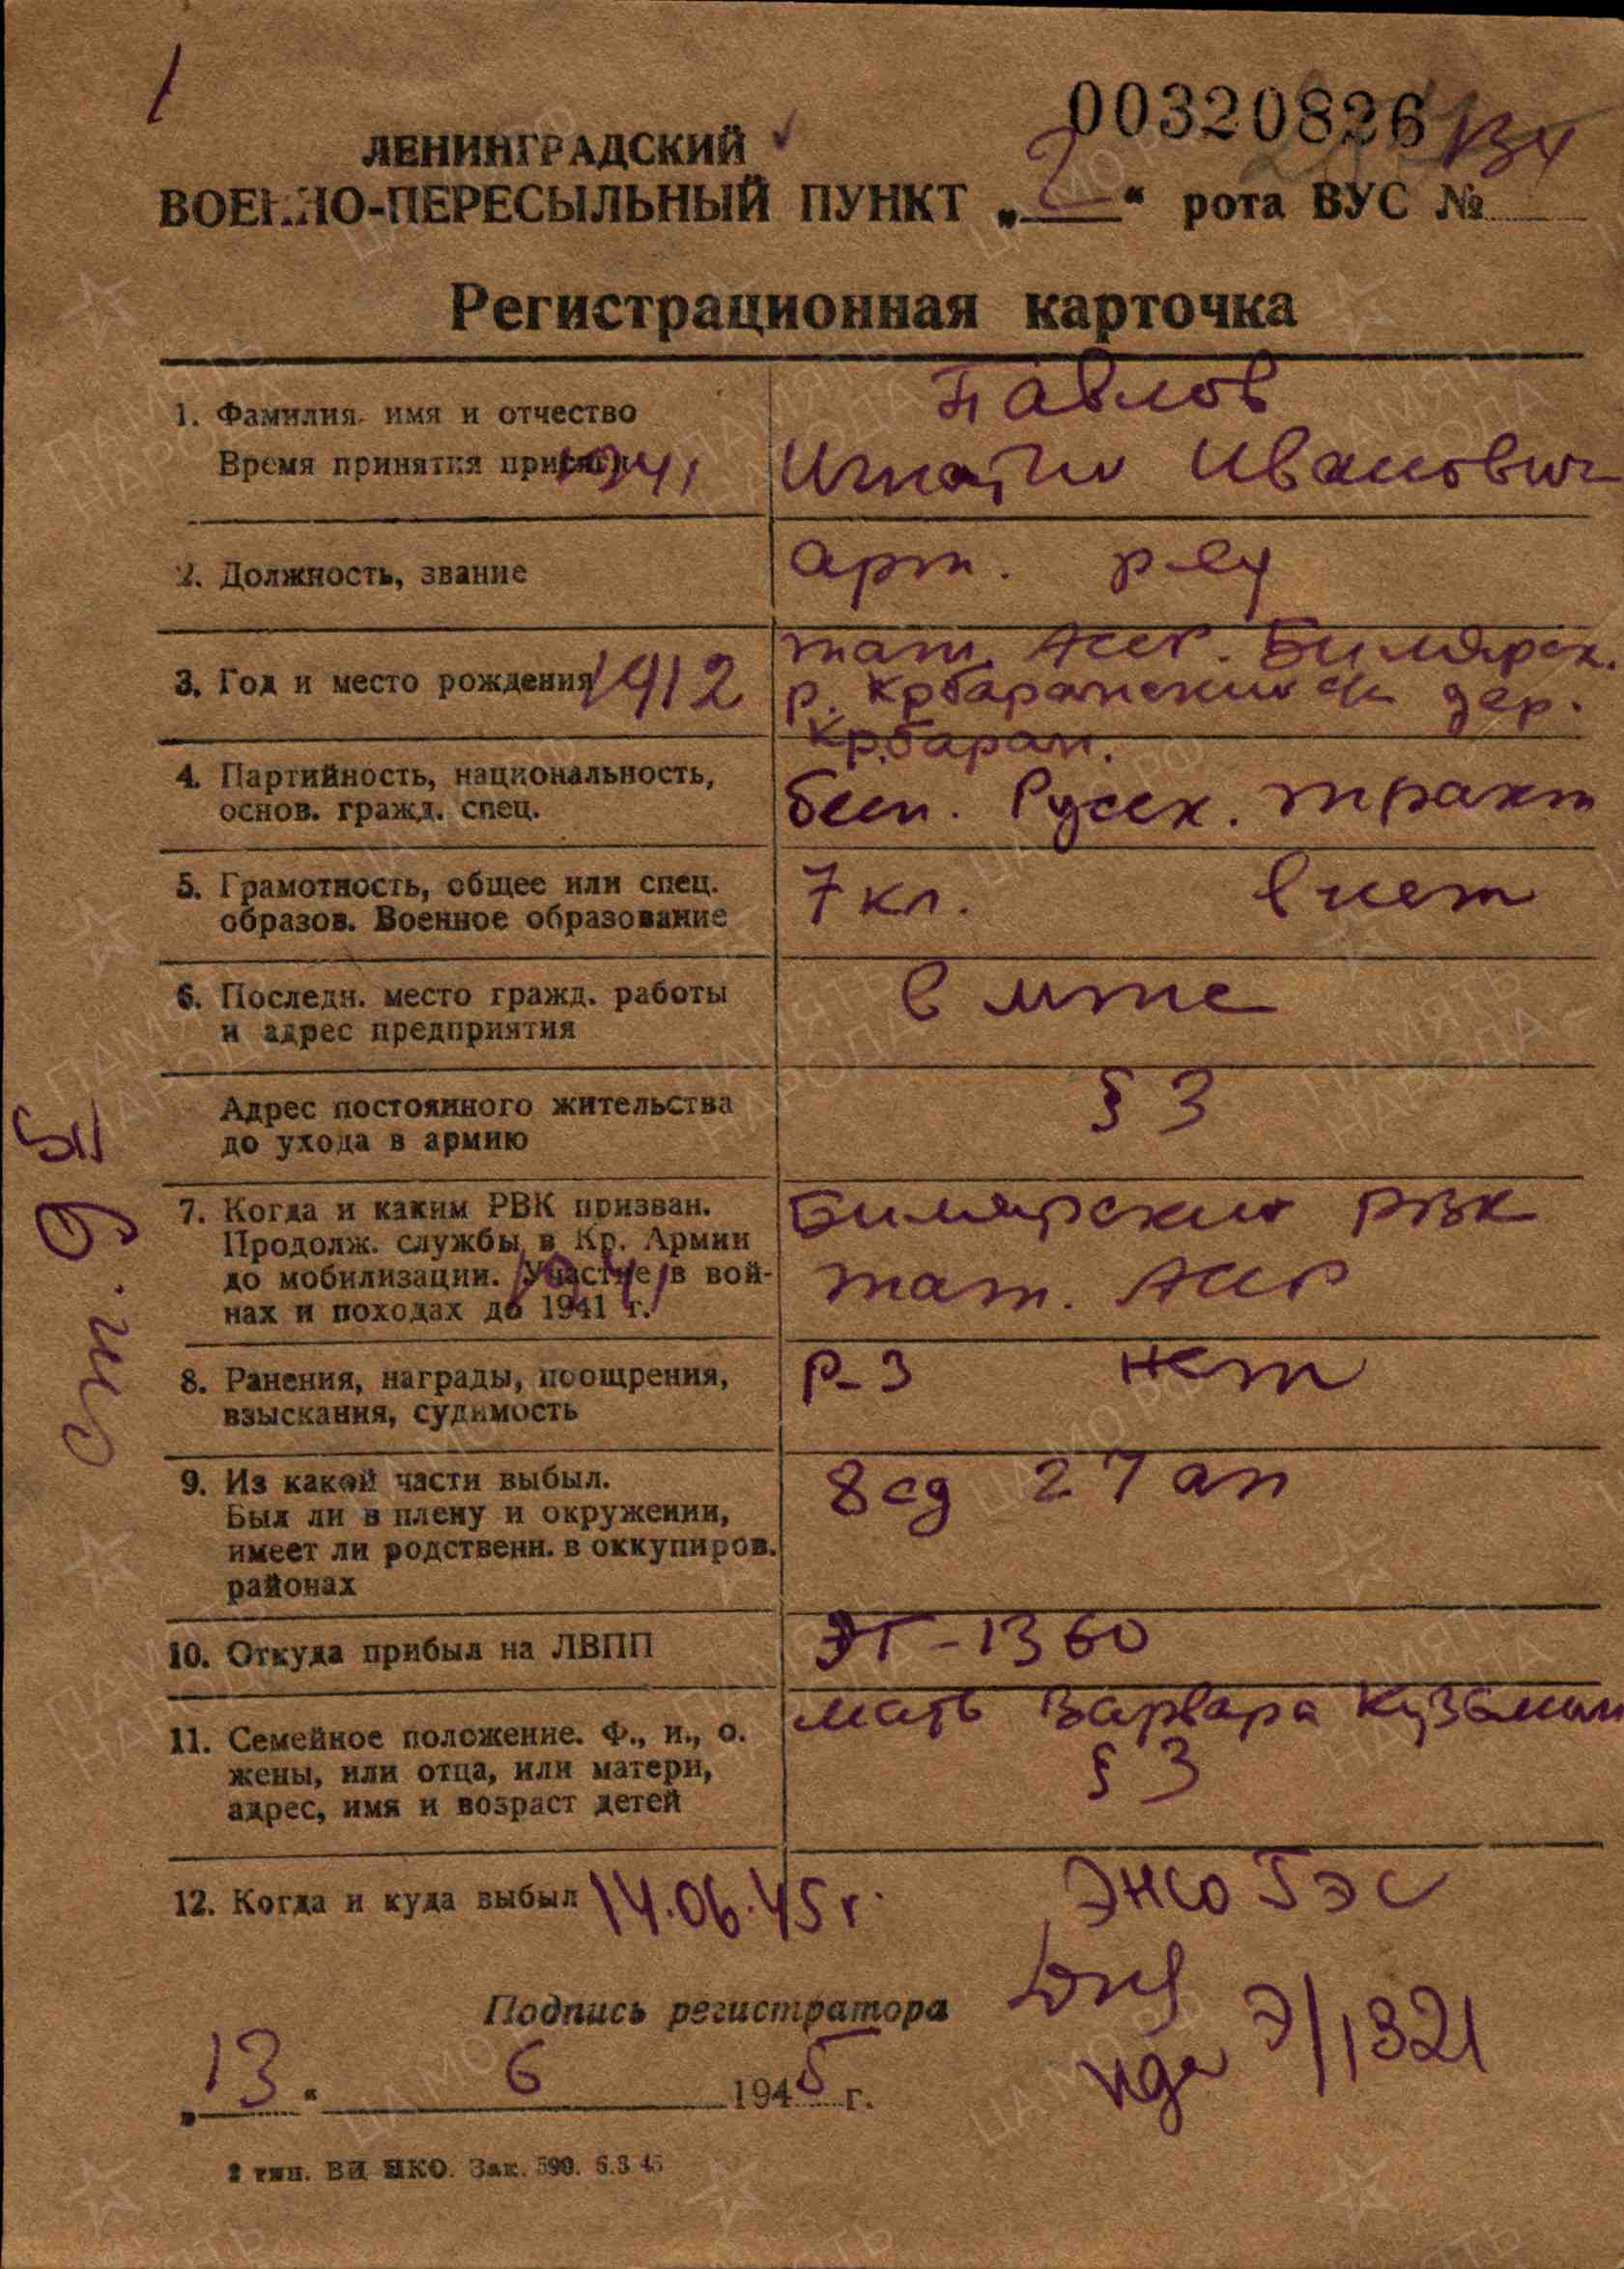 1
00320826
ЛЕНИНГРАДСКИЙ
ВОЕННО-ПЕРЕСЫЛЬНЫЙ ПУНКТ „2“ рота ВУС №
134
Регистрационная карточка
1. Фамилия, имя и отчество
Павлов
Время принятия присяги 1941
Игнатий Иванович
2. Должность, звание
арт. р-ец
3. Год и место рождения 1912
тат. АССР. Билярск.
р. Кр баранский с/с дер.
Кр.баран.
4. Партийность, национальность,
основ. гражд. спец.
бесп. Русск. тракт
5. Грамотность, общее или спец.
образов. Военное образование
7 кл. в нет
6. Последн. место гражд. работы
и адрес предприятия
в мтс
Адрес постоянного жительства
до ухода в армию
§ 3
7. Когда и каким РВК призван.
Продолж. службы в Кр. Армии
до мобилизации. Участие в вой-
нах и походах до 1941 г.
1941
Билярский РВК
тат. АССР
8. Ранения, награды, поощрения,
взыскания, судимость
Р-3 нет
9. Из какой части выбыл.
Был ли в плену и окружении,
имеет ли родственн. в оккупиров.
районах
8 сд 27 ап
10. Откуда прибыл на ЛВПП
ЭГ-1360
11. Семейное положение. Ф., и., о.
жены, или отца, или матери,
адрес, имя и возраст детей
мать Варвара Кузьмин
§ 3
12. Когда и куда выбыл 14.06.45 г.
Энсо Гэс
Подпись регистратора
Э/1321
„13“ 6 1945 г.
2 тип. ВИ НКО. Зак. 590. 6.3 45
ст. 9
ПАМЯТЬ НАРОДА
ЦАМО РФ